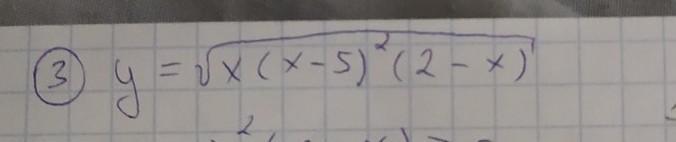 ③ y = √x(x-5)²(2-x)